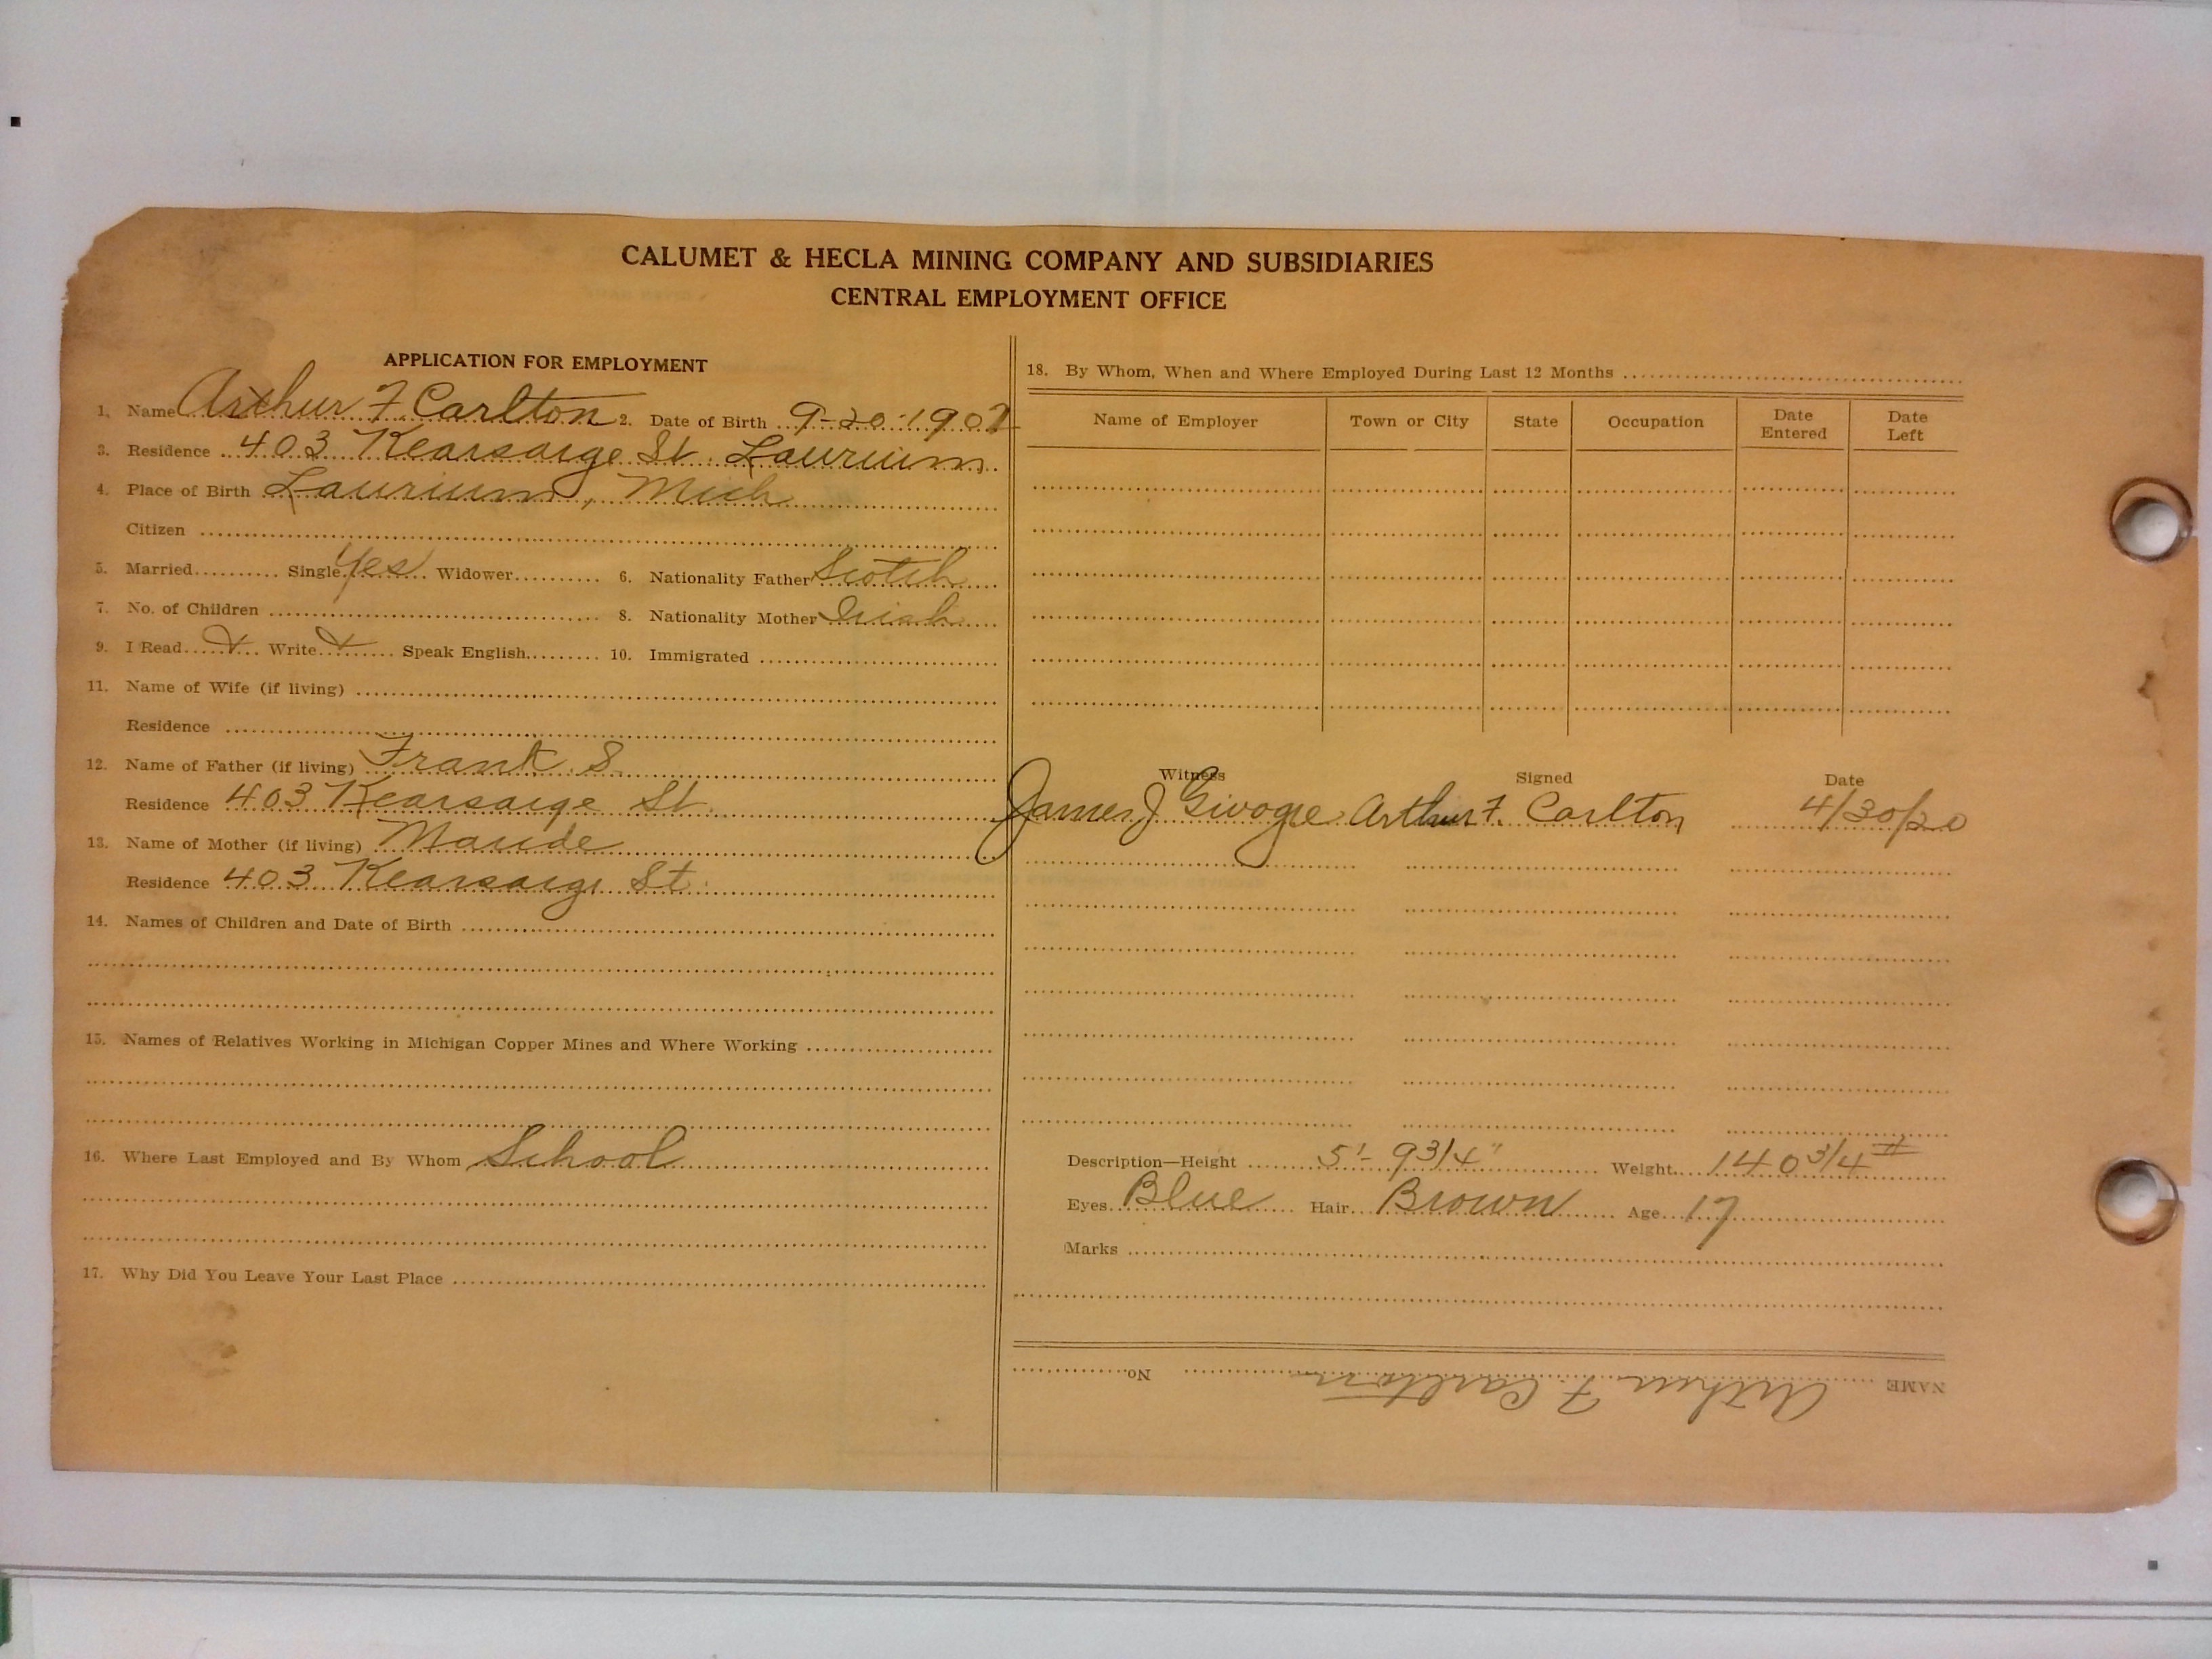 CALUMET & HECLA MINING COMPANY AND SUBSIDIARIES
CENTRAL EMPLOYMENT OFFICE
APPLICATION FOR EMPLOYMENT
1. Name Arthur F. Carlton 2. Date of Birth 9-20-1902
3. Residence 403 Kearsarge St. Laurium
4. Place of Birth Laurium, Mich
Citizen
5. Married Single Yes Widower 6. Nationality Father Scotch
7. No. of Children 8. Nationality Mother Irish
9. I Read Write Speak English 10. Immigrated
11. Name of Wife (if living)
Residence
12. Name of Father (if living) Frank S.
Residence 403 Kearsarge St.
13. Name of Mother (if living) Maude
Residence 403 Kearsarge St.
14. Names of Children and Date of Birth
15. Names of Relatives Working in Michigan Copper Mines and Where Working
16. Where Last Employed and By Whom School
17. Why Did You Leave Your Last Place
18. By Whom, When and Where Employed During Last 12 Months
Name of Employer Town or City State Occupation Date Entered Date Left
Witness Signed Date
James J Arthur F. Carlton 4/30/20
Description—Height 5'- 9 3/4" Weight 140 3/4 #
Eyes Blue Hair Brown Age 17
Marks
NAME Arthur F. Carlton No.